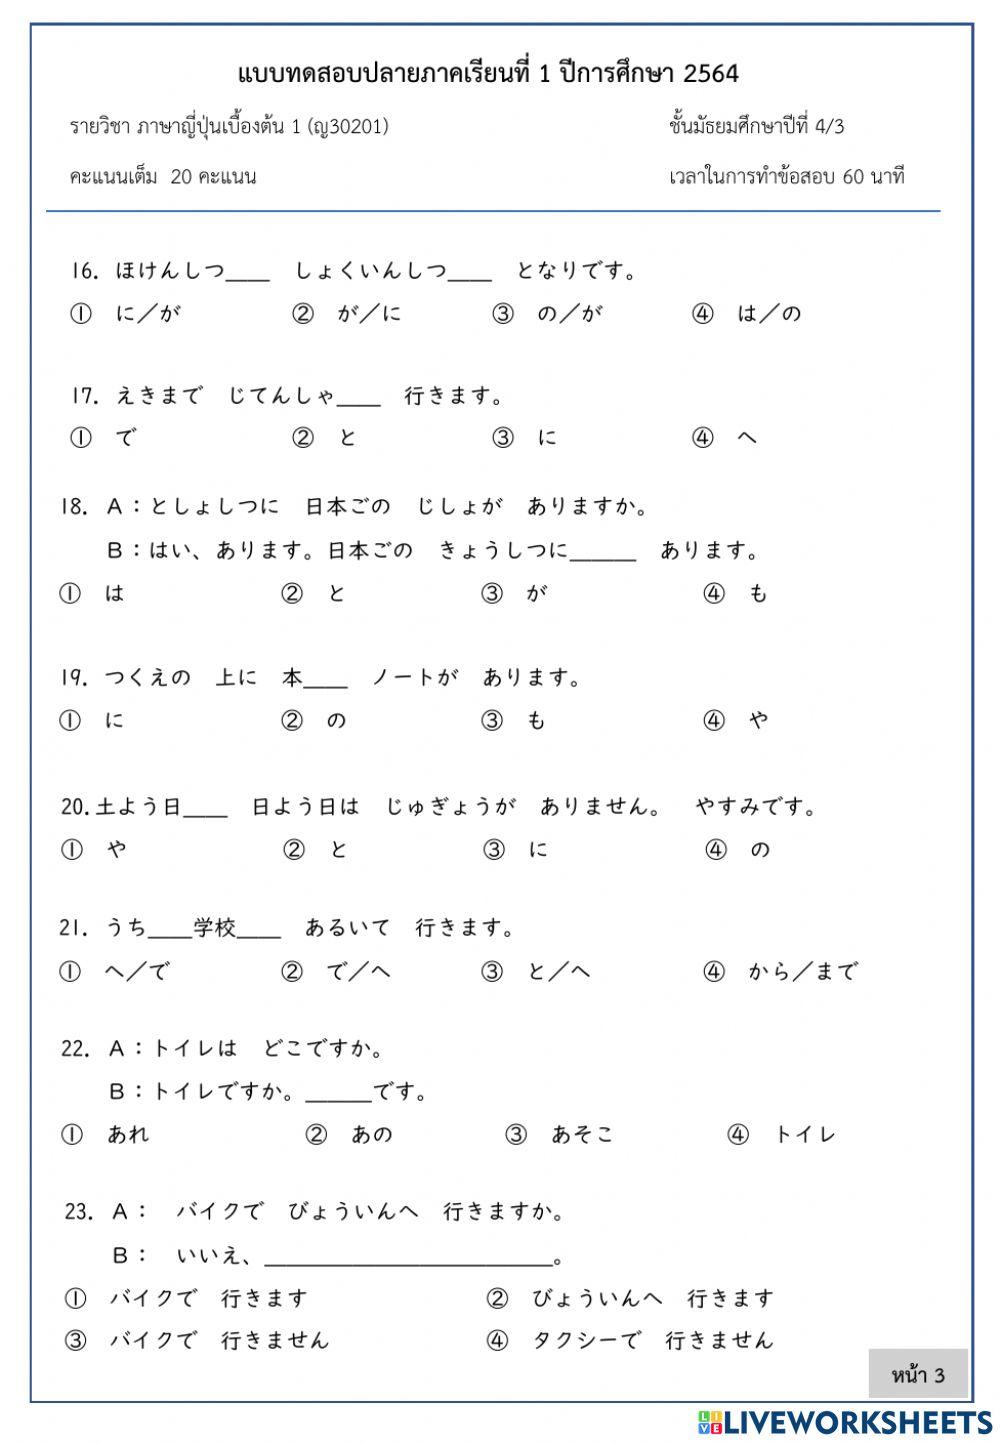 แบบทดสอบปลายภาคเรียนที่ 1 ปีการศึกษา 2564
รายวิชา ภาษาญี่ปุ่นเบื้องต้น 1 (ญ30201) ชั้นมัธยมศึกษาปีที่ 4/3
คะแนนเต็ม 20 คะแนน เวลาในการทำข้อสอบ 60 นาที
16. ほけんしつ____ しょくいんしつ____ となりです。
① に／が ② が／に ③ の／が ④ は／の
17. えきまで じてんしゃ____ 行きます。
① で ② と ③ に ④ へ
18. A：としょしつに 日本ごの じしょが ありますか。
B：はい、あります。日本ごの きょうしつに______ あります。
① は ② と ③ が ④ も
19. つくえの 上に 本____ ノートが あります。
① に ② の ③ も ④ や
20. 土よう日____ 日よう日は じゅぎょうが ありません。 やすみです。
① や ② と ③ に ④ の
21. うち____学校____ あるいて 行きます。
① へ／で ② で／へ ③ と／へ ④ から／まで
22. A：トイレは どこですか。
B：トイレですか。______です。
① あれ ② あの ③ あそこ ④ トイレ
23. A： バイクで びょういんへ 行きますか。
B： いいえ、__________________________。
① バイクで 行きます ② びょういんへ 行きます
③ バイクで 行きません ④ タクシーで 行きません
หน้า 3
LIVE LIVEWORKSHEETS